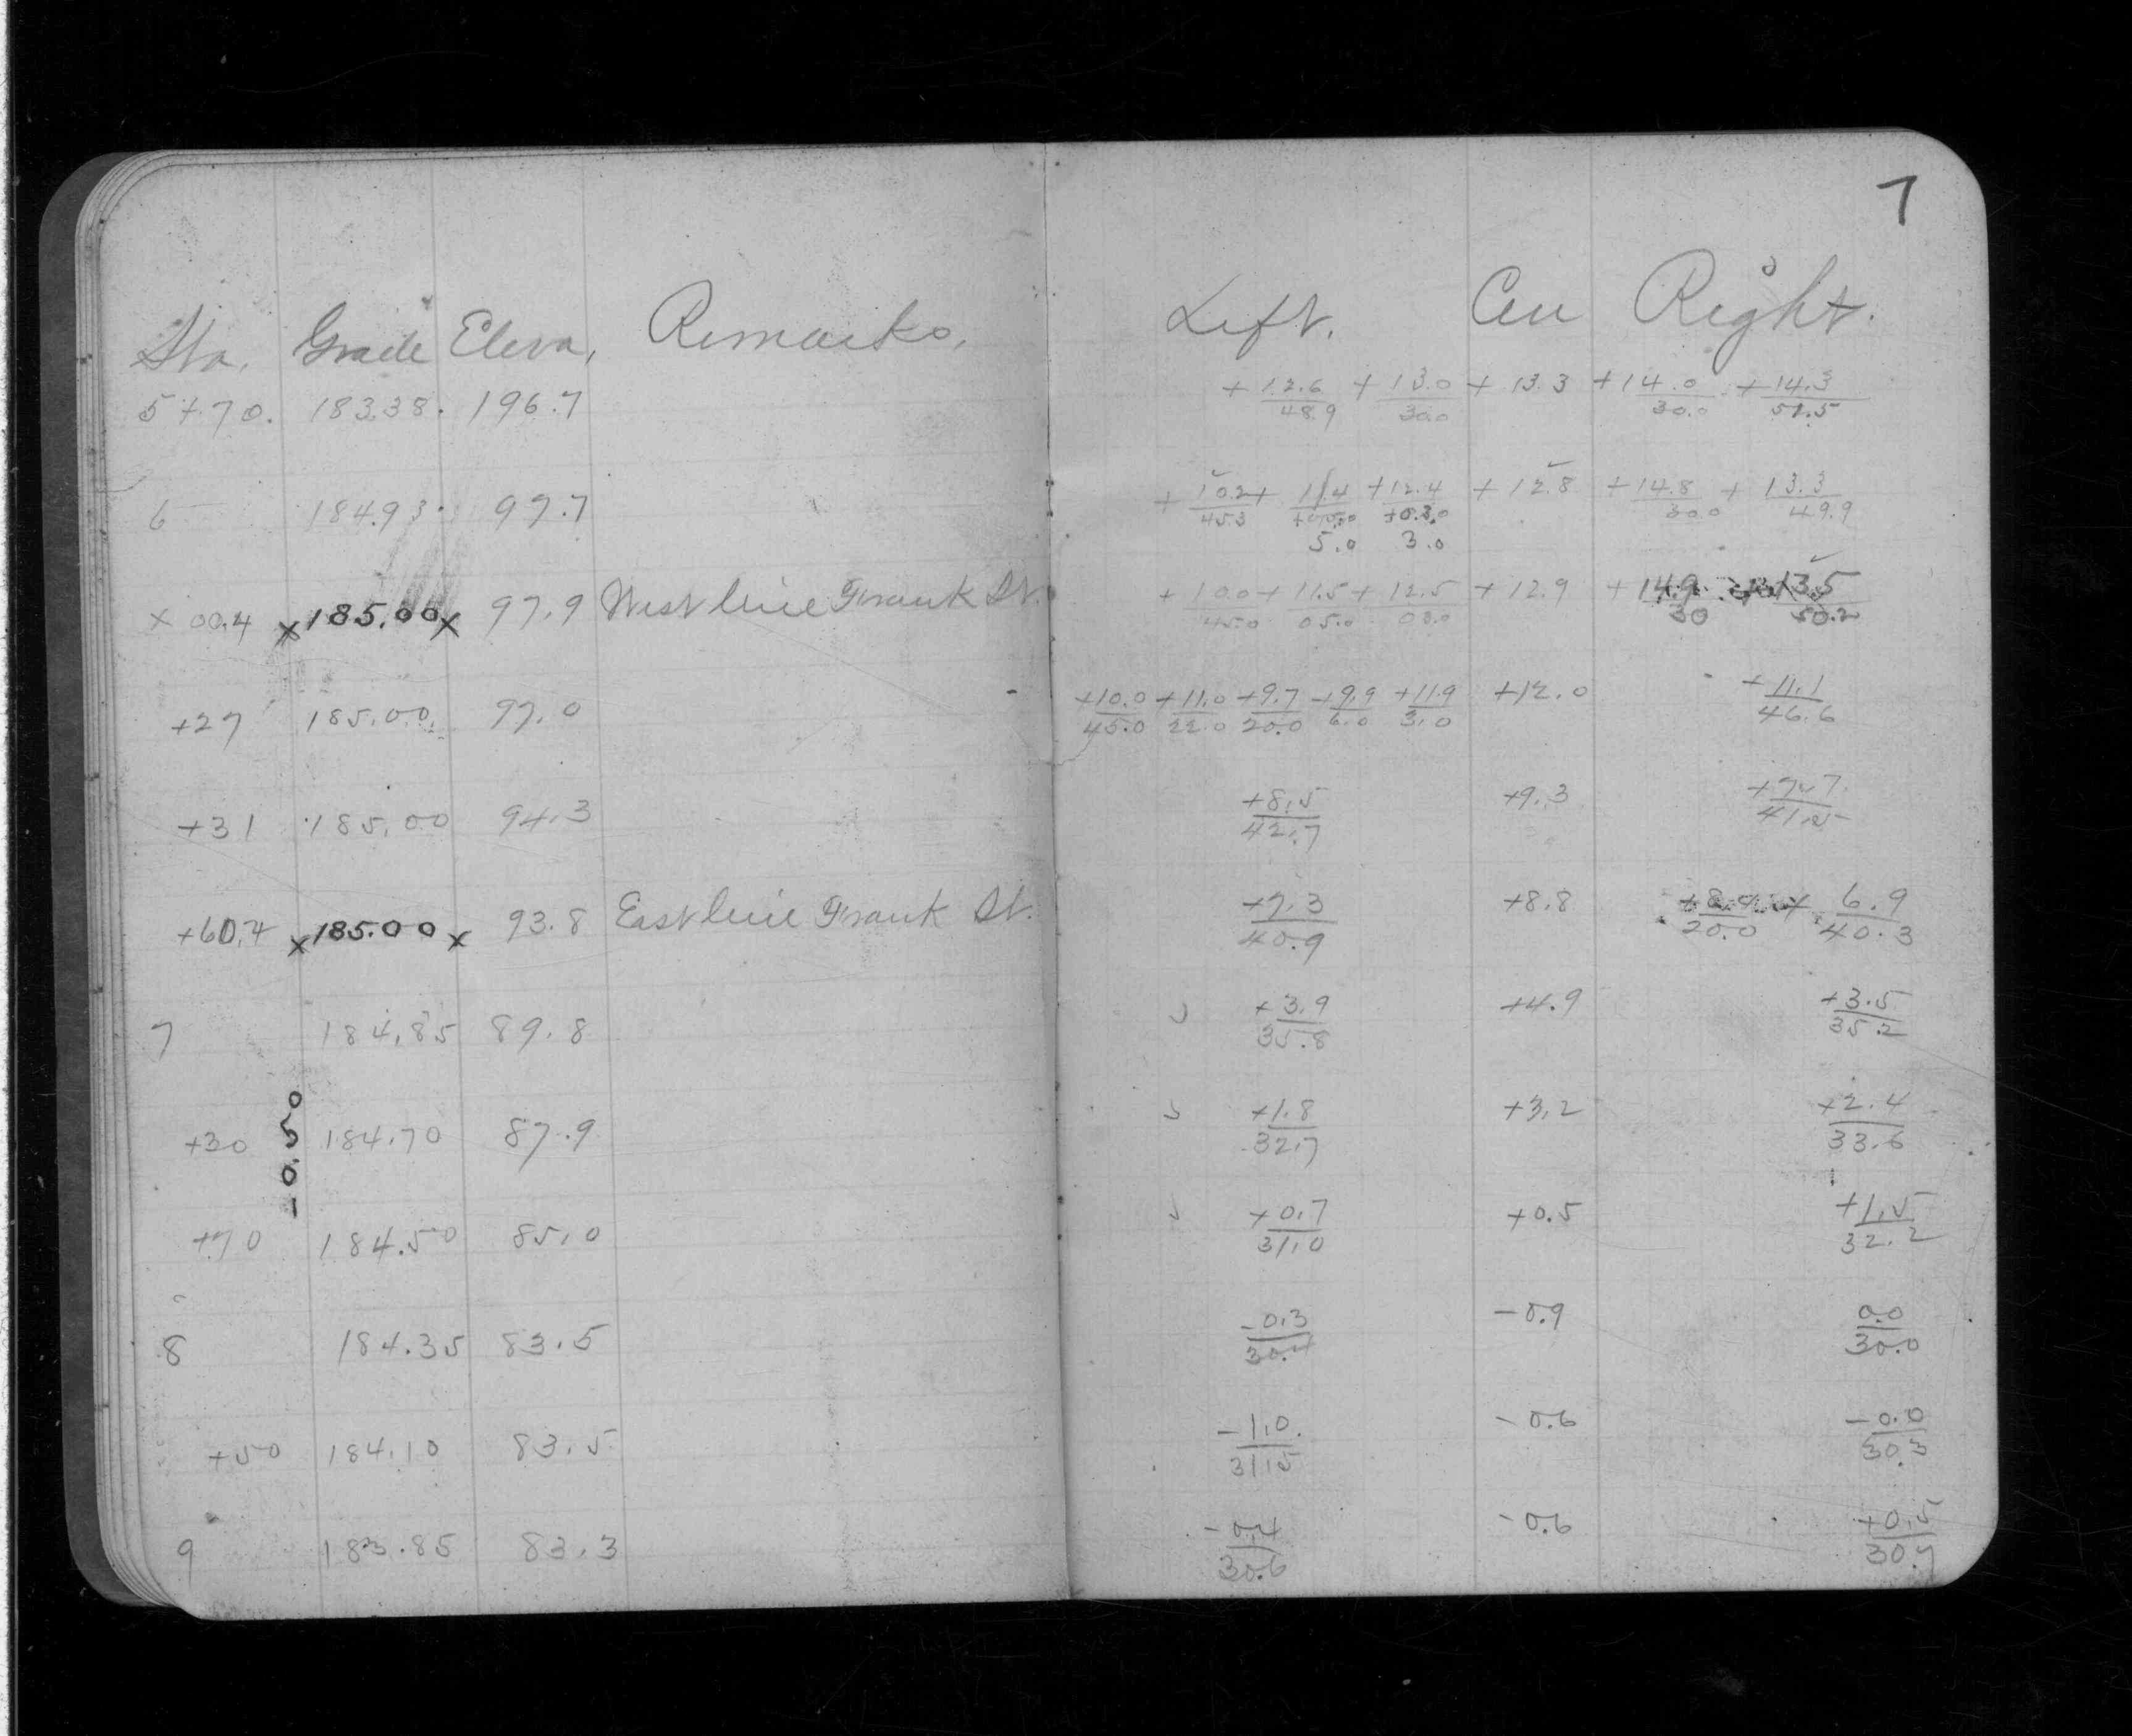 7
Sta. Grade Eleva, Remarks, Left. Cen Right.
5+70. 183.38. 196.7 +12.6/48.9 +13.0/30.0 +13.3 +14.0/30.0 +14.3/51.5
6 184.93. 97.7 +10.2/45.3 +11.4/5.0 +12.4/3.0 +12.8 +14.8/30.0 +13.3/49.9
5.0 3.0
+00.4 x185.00x 97.9 West line Frank St. +10.0/45.0 +11.5/05.0 +12.5/03.0 +12.9 +14.9/30 +13.5/50.2
+27 185.00. 97.0 +10.0/45.0 +11.0/22.0 +9.7/20.0 +9.9/6.0 +11.9/3.0 +12.0 +11.1/46.6
+31 185.00 94.3 +8.5/42.7 +9.3 +7.7/41.5
+60.4 x185.00x 93.8 East line Frank St. +7.3/40.9 +8.8 /20.0 +6.9/40.3
7 184.85 89.8 +3.9/35.8 +4.9 +3.5/35.2
-0.50
+30 184.70 87.9 +1.8/32.7 +3.2 +2.4/33.6
+70 184.50 85.0 +0.7/31.0 +0.5 +1.5/32.2
8 184.35 83.5 -0.3/30.4 -0.9 0.0/30.0
+50 184.10 83.5 -1.0./31.5 -0.6 -0.0/30.3
9 183.85 83.3 -0.4/30.6 -0.6 +0.5/30.7